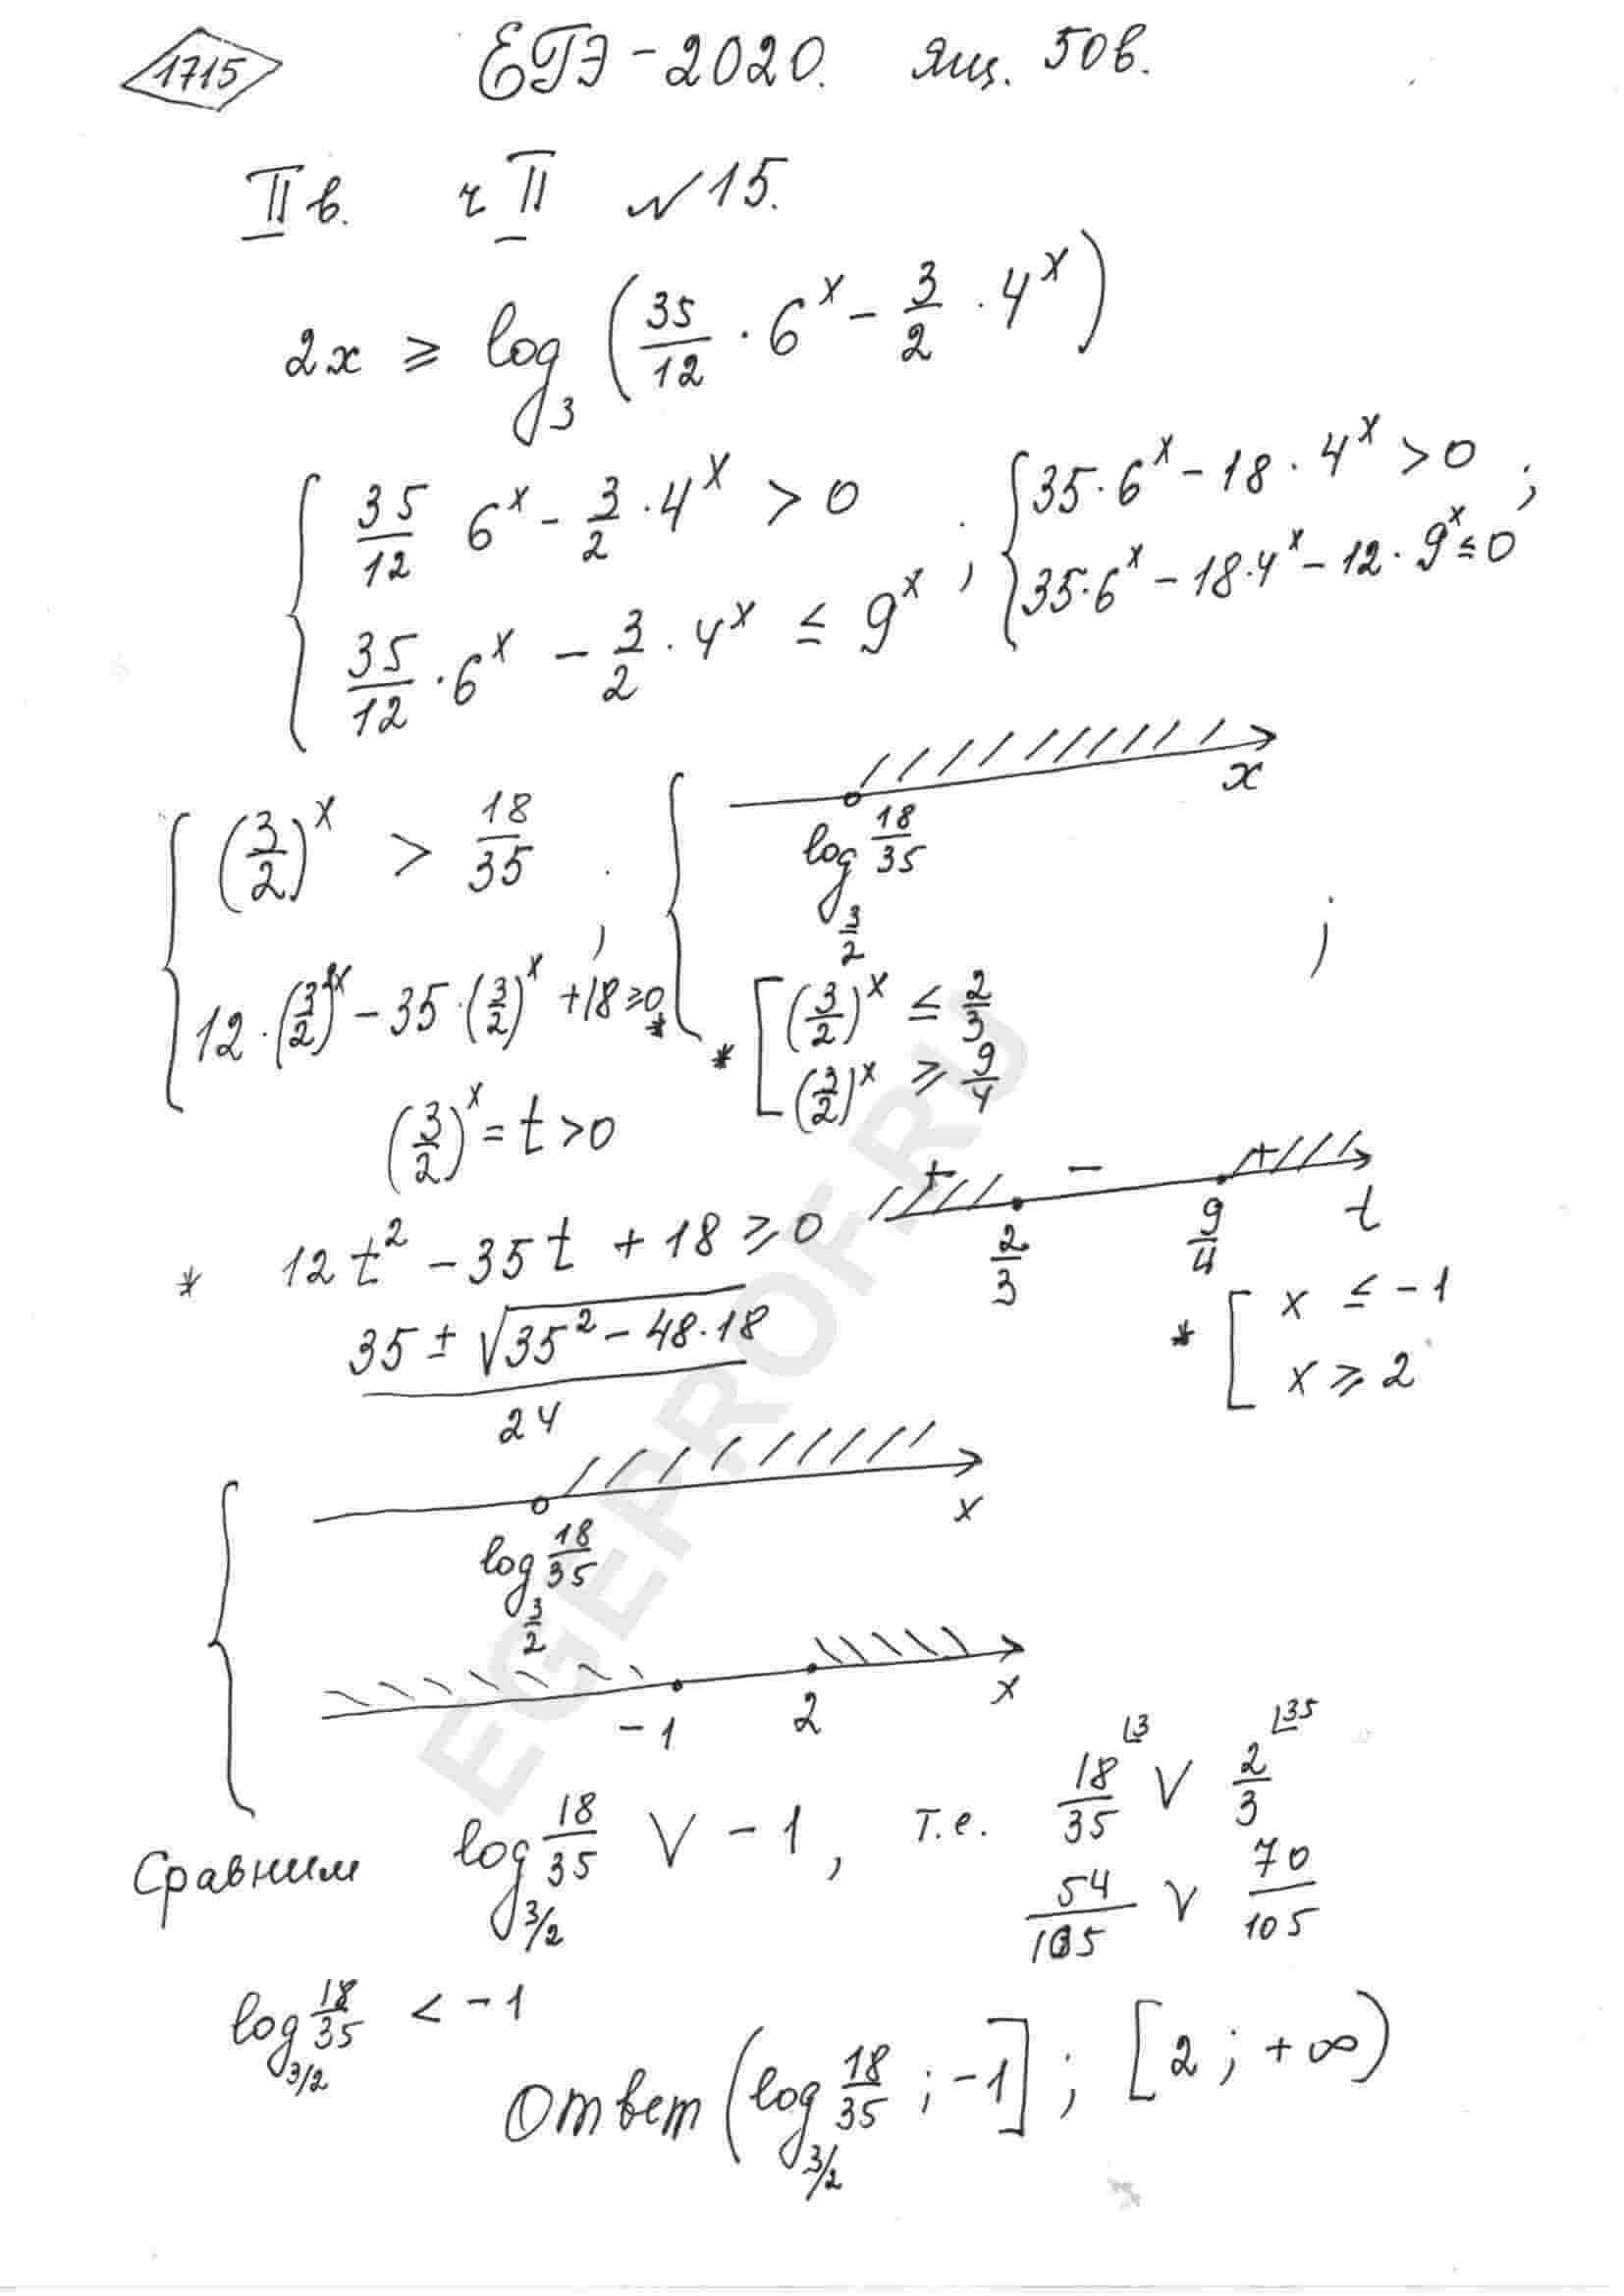 1715 ЕГЭ-2020. Ящ. 50в.
II в. ч II №15.
2x ≥ log_3 (35/12 · 6^x - 3/2 · 4^x)
{ 35/12 6^x - 3/2 · 4^x > 0 ; { 35·6^x - 18 · 4^x > 0 ;
35/12 · 6^x - 3/2 · 4^x ≤ 9^x 35·6^x - 18·4^x - 12 · 9^x ≤ 0
{ (3/2)^x > 18/35 ; { log_{3/2} 18/35 x ;
12 · (3/2)^{2x} - 35 · (3/2)^x + 18 ≥ 0 * * [ (3/2)^x ≤ 2/3
(3/2)^x ≥ 9/4
(3/2)^x = t > 0
+ - +
2/3 9/4 t
* 12t^2 - 35t + 18 ≥ 0
(35 ± √(35^2 - 48·18))/24
* [ x ≤ -1
x ≥ 2
{ log_{3/2} 18/35 x
-1 2 x
Сравним log_{3/2} 18/35 V -1, т.е. 18/35 ⌊3 V 2/3 ⌊35
54/105 V 70/105
log_{3/2} 18/35 < -1
Ответ (log_{3/2} 18/35 ; -1] ; [2 ; +∞)
EGEPROF.RU